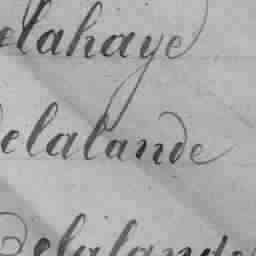 elahaye
elalande
Delalande